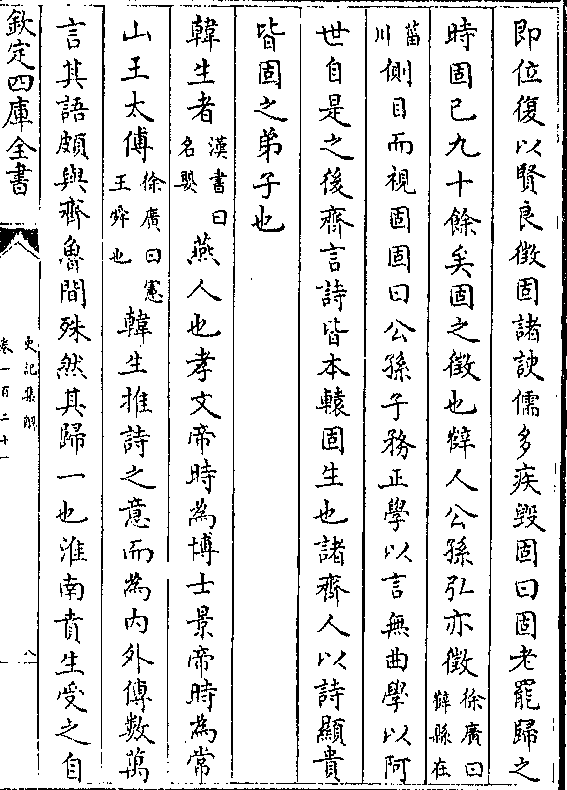 即位復以賢良徵固諸諛儒多疾毀固曰固老罷歸之
時固已九十餘矣固之徵也薛人公孫弘亦徵徐廣曰薛縣在
菑川側目而視固固曰公孫子務正學以言無曲學以阿
世自是之後齊言詩皆本轅固生也諸齊人以詩顯貴
皆固之弟子也
韓生者漢書曰名嬰燕人也孝文帝時為博士景帝時為常
山王太傅徐廣曰憲王舜也韓生推詩之意而為內外傳數萬
言其語頗與齊魯間殊然其歸一也淮南賁生受之自
欽定四庫全書
史記集解
卷一百二十一
八